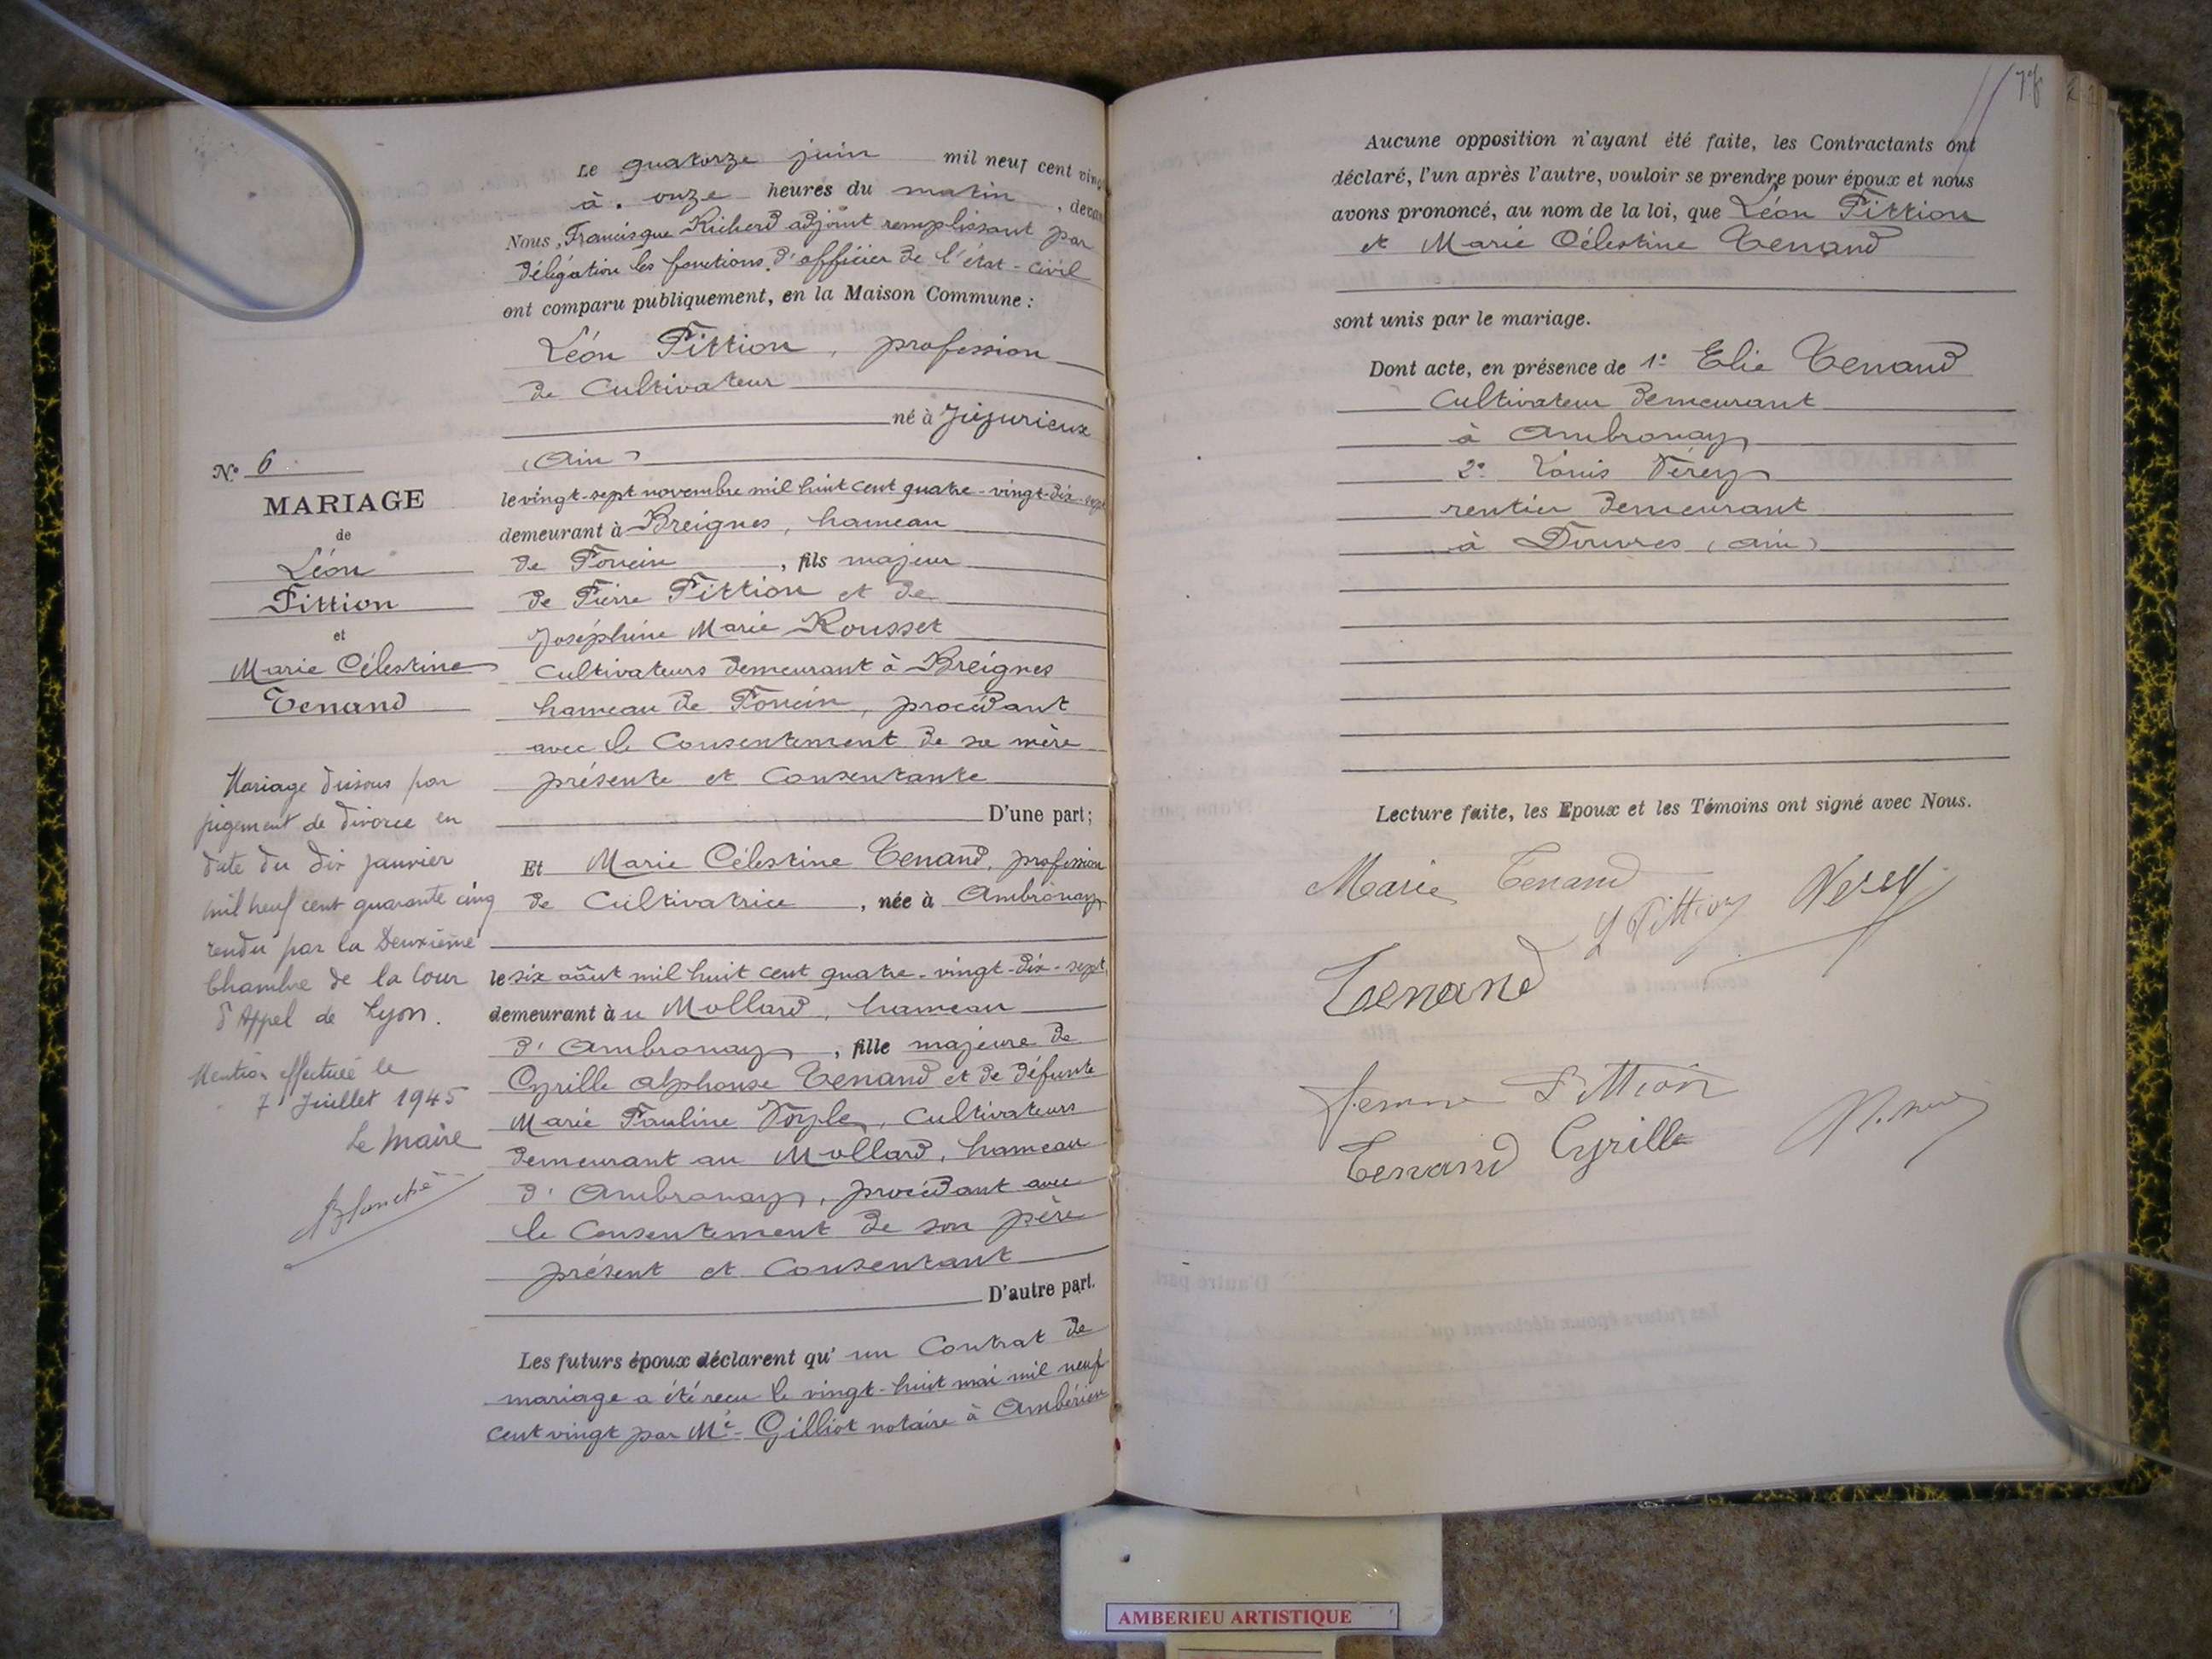 Le quatorze juin mil neuf cent vingt
à onze heures du matin, devant
Nous, Francisque Richerd adjoint remplissant par
délégation les fonctions d'officier de l'état-civil
ont comparu publiquement, en la Maison Commune :
Léon Pittion, profession
de Cultivateur
né à Jujurieux
(Ain)
le vingt-sept novembre mil huit cent quatre-vingt-dix-sept
demeurant à Breignes, hameau
de Poncin, fils majeur
de Pierre Pittion et de
Joséphine Marie Rousset
Cultivateurs demeurant à Breignes
hameau de Poncin, procédant
avec le Consentement de sa mère
présente et Consentante
D'une part;
Et Marie Célestine Tenand, profession
de Cultivatrice, née à Ambronay
le six août mil huit cent quatre-vingt-dix-sept,
demeurant au Mollard, hameau
d'Ambronay, fille majeure de
Cyrille Alphonse Tenand et de défunte
Marie Pauline, Cultivateurs
demeurant au Mollard, hameau
d'Ambronay, procédant avec
le Consentement de son père
présent et Consentant
D'autre part.
Les futurs époux déclarent qu'un Contrat de
mariage a été reçu le vingt-huit mai mil neuf
cent vingt par Me Gilliot notaire à Ambérieu
N° 6
MARIAGE
de
Léon
Pittion
et
Marie Célestine
Tenand
Mariage dissous par
jugement de divorce en
date du dix janvier
mil neuf cent quarante cinq
rendu par la Deuxième
Chambre de la Cour
d'Appel de Lyon.
Mention effectuée le
7 Juillet 1945
Le Maire
78
Aucune opposition n'ayant été faite, les Contractants ont
déclaré, l'un après l'autre, vouloir se prendre pour époux et nous
avons prononcé, au nom de la loi, que Léon Pittion
et Marie Célestine Tenand
sont unis par le mariage.
Dont acte, en présence de 1° Elie Tenand
Cultivateur demeurant
à Ambronay
2° Louis Vérey
rentier demeurant
à Douvres (Ain)
Lecture faite, les Epoux et les Témoins ont signé avec Nous.
Marie Tenand
L Pittion
Verey
Tenand
femme Pittion
Tenand Cyrille
AMBERIEU ARTISTIQUE